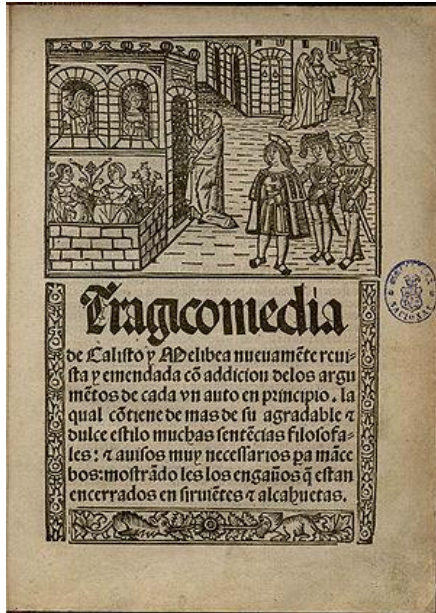 Tragicomedia
de Calisto y Melibea nueuamẽte reui-
sta y emendada cõ addicion delos argu
mẽtos de cada vn auto en principio. la
qual cõtiene de mas de su agradable ⁊
dulce estilo muchas sentẽcias filosofa-
les: ⁊ auisos muy necessarios pa mãce
bos: mostrãdo les los engaños q̃ estan
encerrados en siruiẽtes ⁊ alcahuetas.